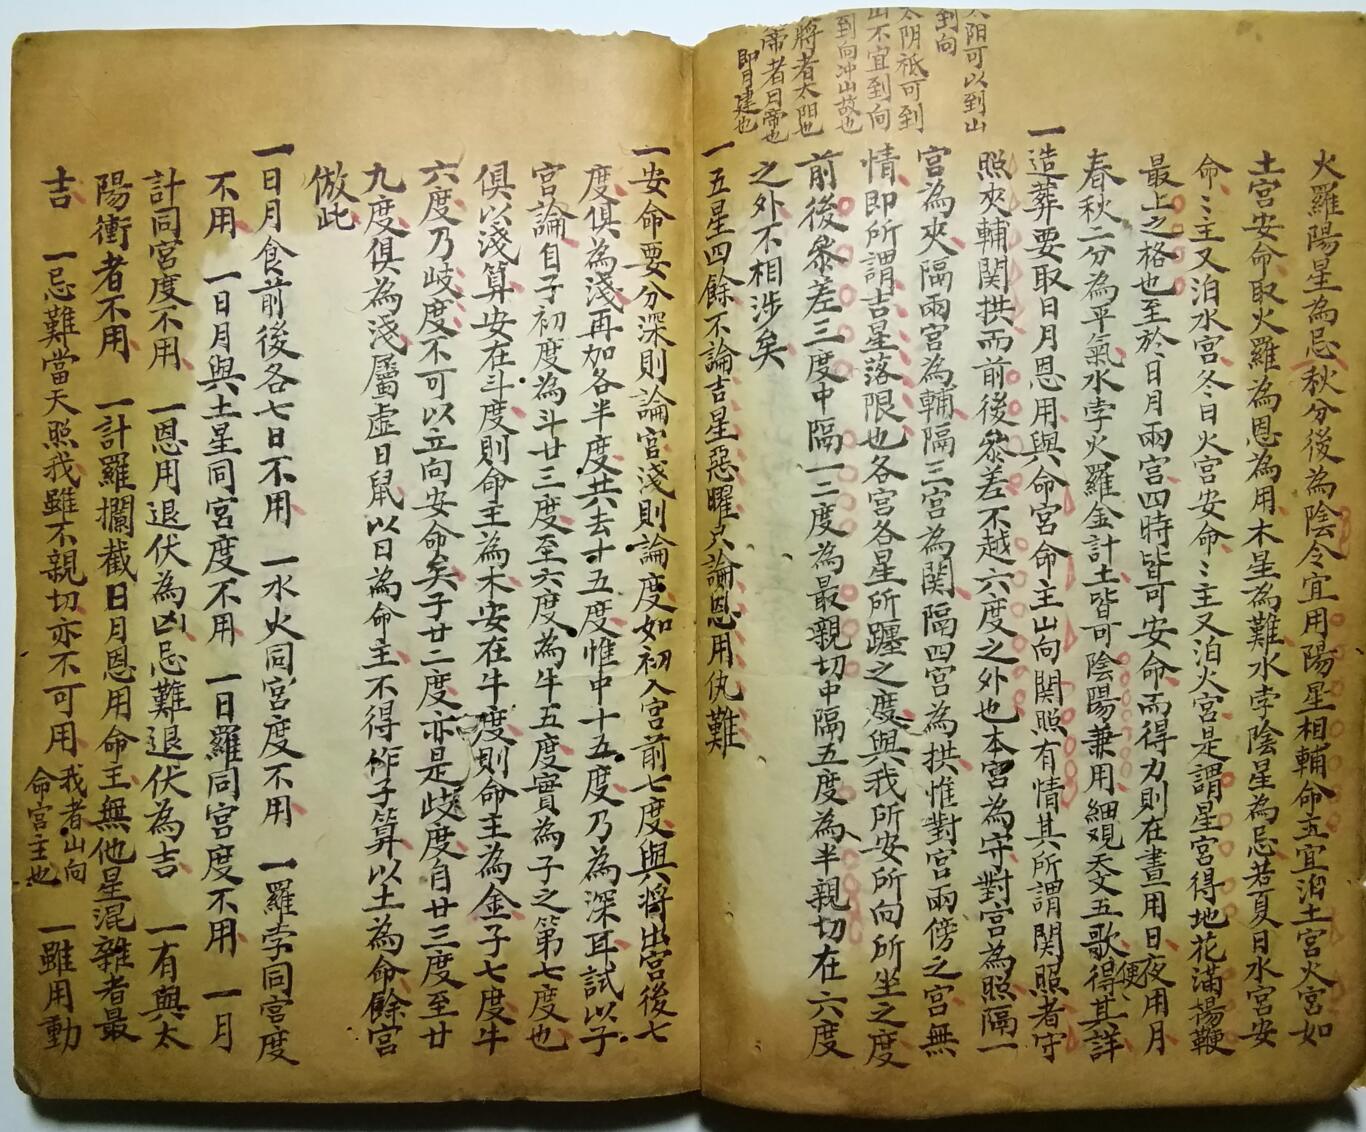 太阳可以到山
到向
太阴祗可到
山不宜到向
到向冲山故也
將者太阳也
帝者日帝也
即日建也
火羅陽星為忌秋分後為陰令宜用陽星相輔命主宜泊土宮火宮如
土宮安命取火羅為恩為用木星為難水孛陰星為忌若夏日水宮安
命〻主又泊水宮冬日火宮安命〻主又泊火宮是謂星宮得地花滿揚鞭
最上之格也至於日月兩宮四時皆可安命而得力則在晝用日夜用月
春秋二分為平氣水孛火羅金計土皆可陰陽兼用細观天文五歌便得其詳
一造葬要取日月恩用與命宮命主山向関照有情其所謂関照者守
照夾輔関拱而前後叅差不越六度之外也本宮為守對宮為照隔一
宮為夾隔兩宮為輔隔三宮為関隔四宮為拱惟對宮兩傍之宮無
情即所謂吉星落限也各宮各星所躔之度與我所安所向所坐之度
前後叅差三度中隔一二度為最親切中隔五度為半親切在六度
之外不相涉矣
一五星四餘不論吉星惡曜只論恩用仇難
一安命要分深則論宮淺則論度如初入宮前七度與將出宮後七
度俱為淺再加各半度共去十五度惟中十五度乃為深耳試以子
宮論自子初度為斗廿三度至六度為牛五度實為子之第七度也
俱以淺算安在斗度則命主為木安在牛度則命主為金子七度牛
六度乃岐度不可以立向安命矣子廿二度亦是歧度自廿三度至廿
九度俱為淺屬虛日鼠以日為命主不得作子算以土為命餘宮
倣此
一日月食前後各七日不用 一水火同宮度不用 一羅孛同宮度
不用 一日月與土星同宮度不用 一日羅同宮度不用 一月
計同宮度不用 一恩用退伏為凶忌難退伏為吉 一有與太
陽衝者不用 一計羅攔截日月恩用命主無他星混雜者最
吉 一忌難當天照我雖不親切亦不可用 我者山向命宮主也 一雖用動